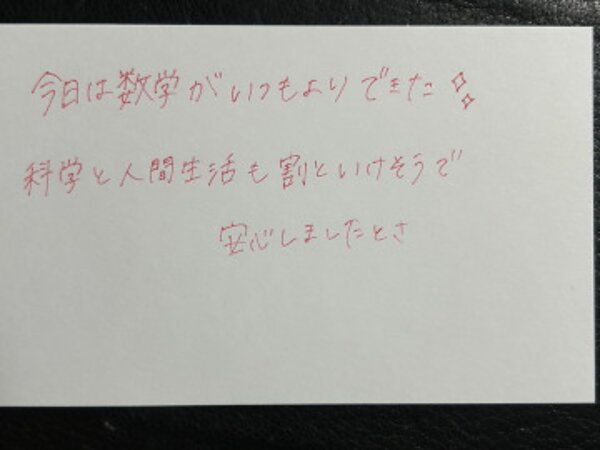 今日は数学がいつもよりできた✨
科学と人間生活も割といけそうで
安心しましたとさ